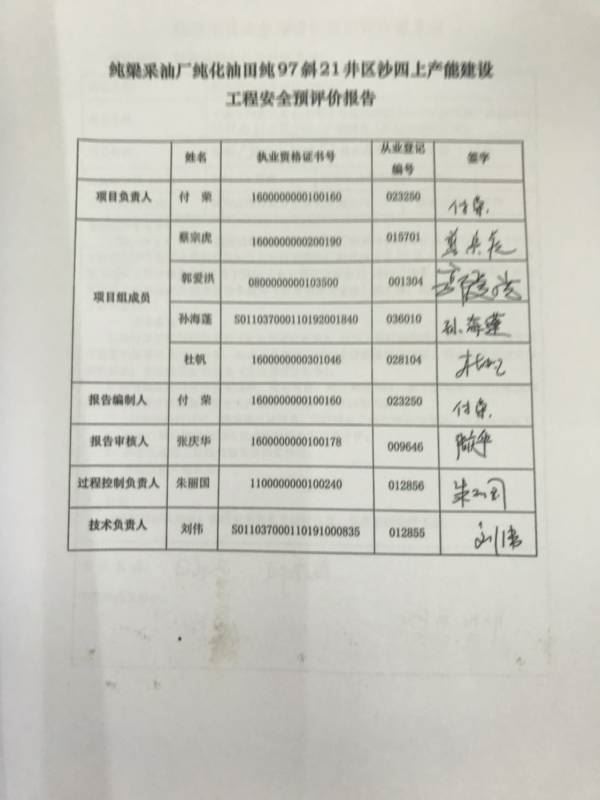 纯梁采油厂纯化油田纯97斜21井区沙四上产能建设
工程安全预评价报告
姓名 执业资格证书号 从业登记编号 签字
项目负责人 付 荣 1600000000100160 023250 付荣
项目组成员
蔡宗虎 1600000000200190 015701
郭爱洪 0800000000103500 001304
孙海莲 S011037000110192001840 036010 孙海莲
杜帆 1600000000301046 028104 杜帆
报告编制人 付 荣 1600000000100160 023250 付荣
报告审核人 张庆华 1600000000100178 009646
过程控制负责人 朱丽国 1100000000100240 012856 朱丽国
技术负责人 刘伟 S011037000110191000835 012855 刘伟